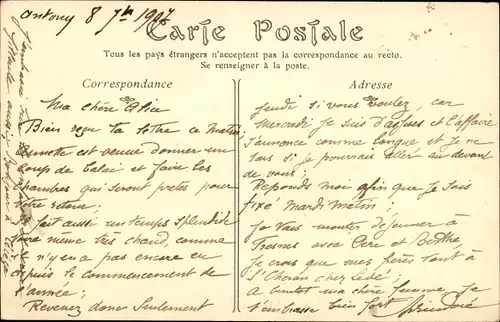 Antony 8 7bre 1907
Carte Postale
Tous les pays étrangers n'acceptent pas la correspondance au recto.
Se renseigner à la poste.
Correspondance
Ma chère Alice
Bien reçu ta lettre ce matin,
Annette est venue donner un
coup de balai et faire les
chambres qui seront pretes pour
votre retour.
Il fait aussi un temps splendide
voire même très chaud, comme
il n'y en a pas encore eu
depuis le commencement de
l'année;
Revenez donc seulement
Adresse
jeudi si vous voulez, car
Mercredi je suis d'assises et l'affaire
s'annonce comme longue et je ne
sais si je pourrais aller au devant
de vous;
Reponds moi afin que je sois
fixé Mardi Matin;
Je vais monter déjeuner à
Fresnes avec Père et Berthe
Je crois que mes frères sont à
St Cheron chez
A bientot ma chère femme, je
t'embrasse bien fort